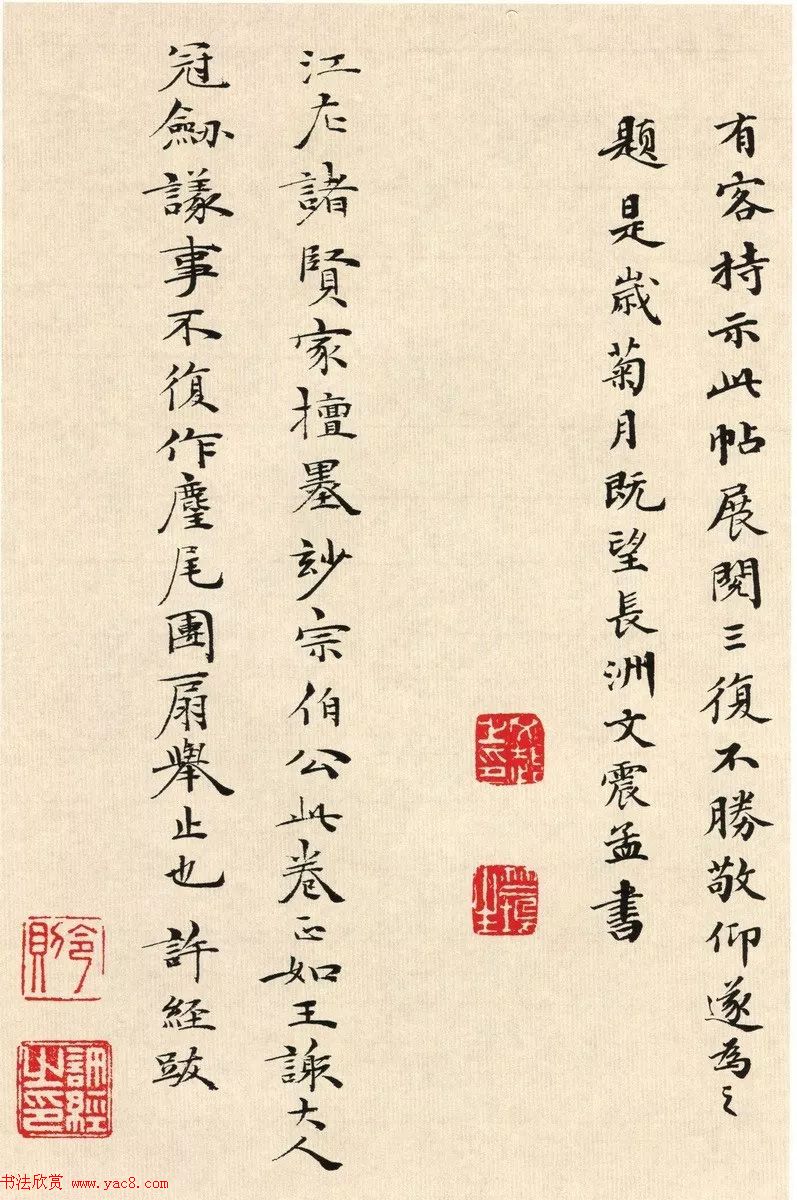 有客持示此帖展閱三復不勝敬仰遂為之
題是歲菊月既望長洲文震孟書
江左諸賢家擅墨玅宗伯公此卷正如王謝大人
冠劒議事不復作麈尾團扇舉止也 許經跋
許經之印
书法欣赏 www.yac8.com